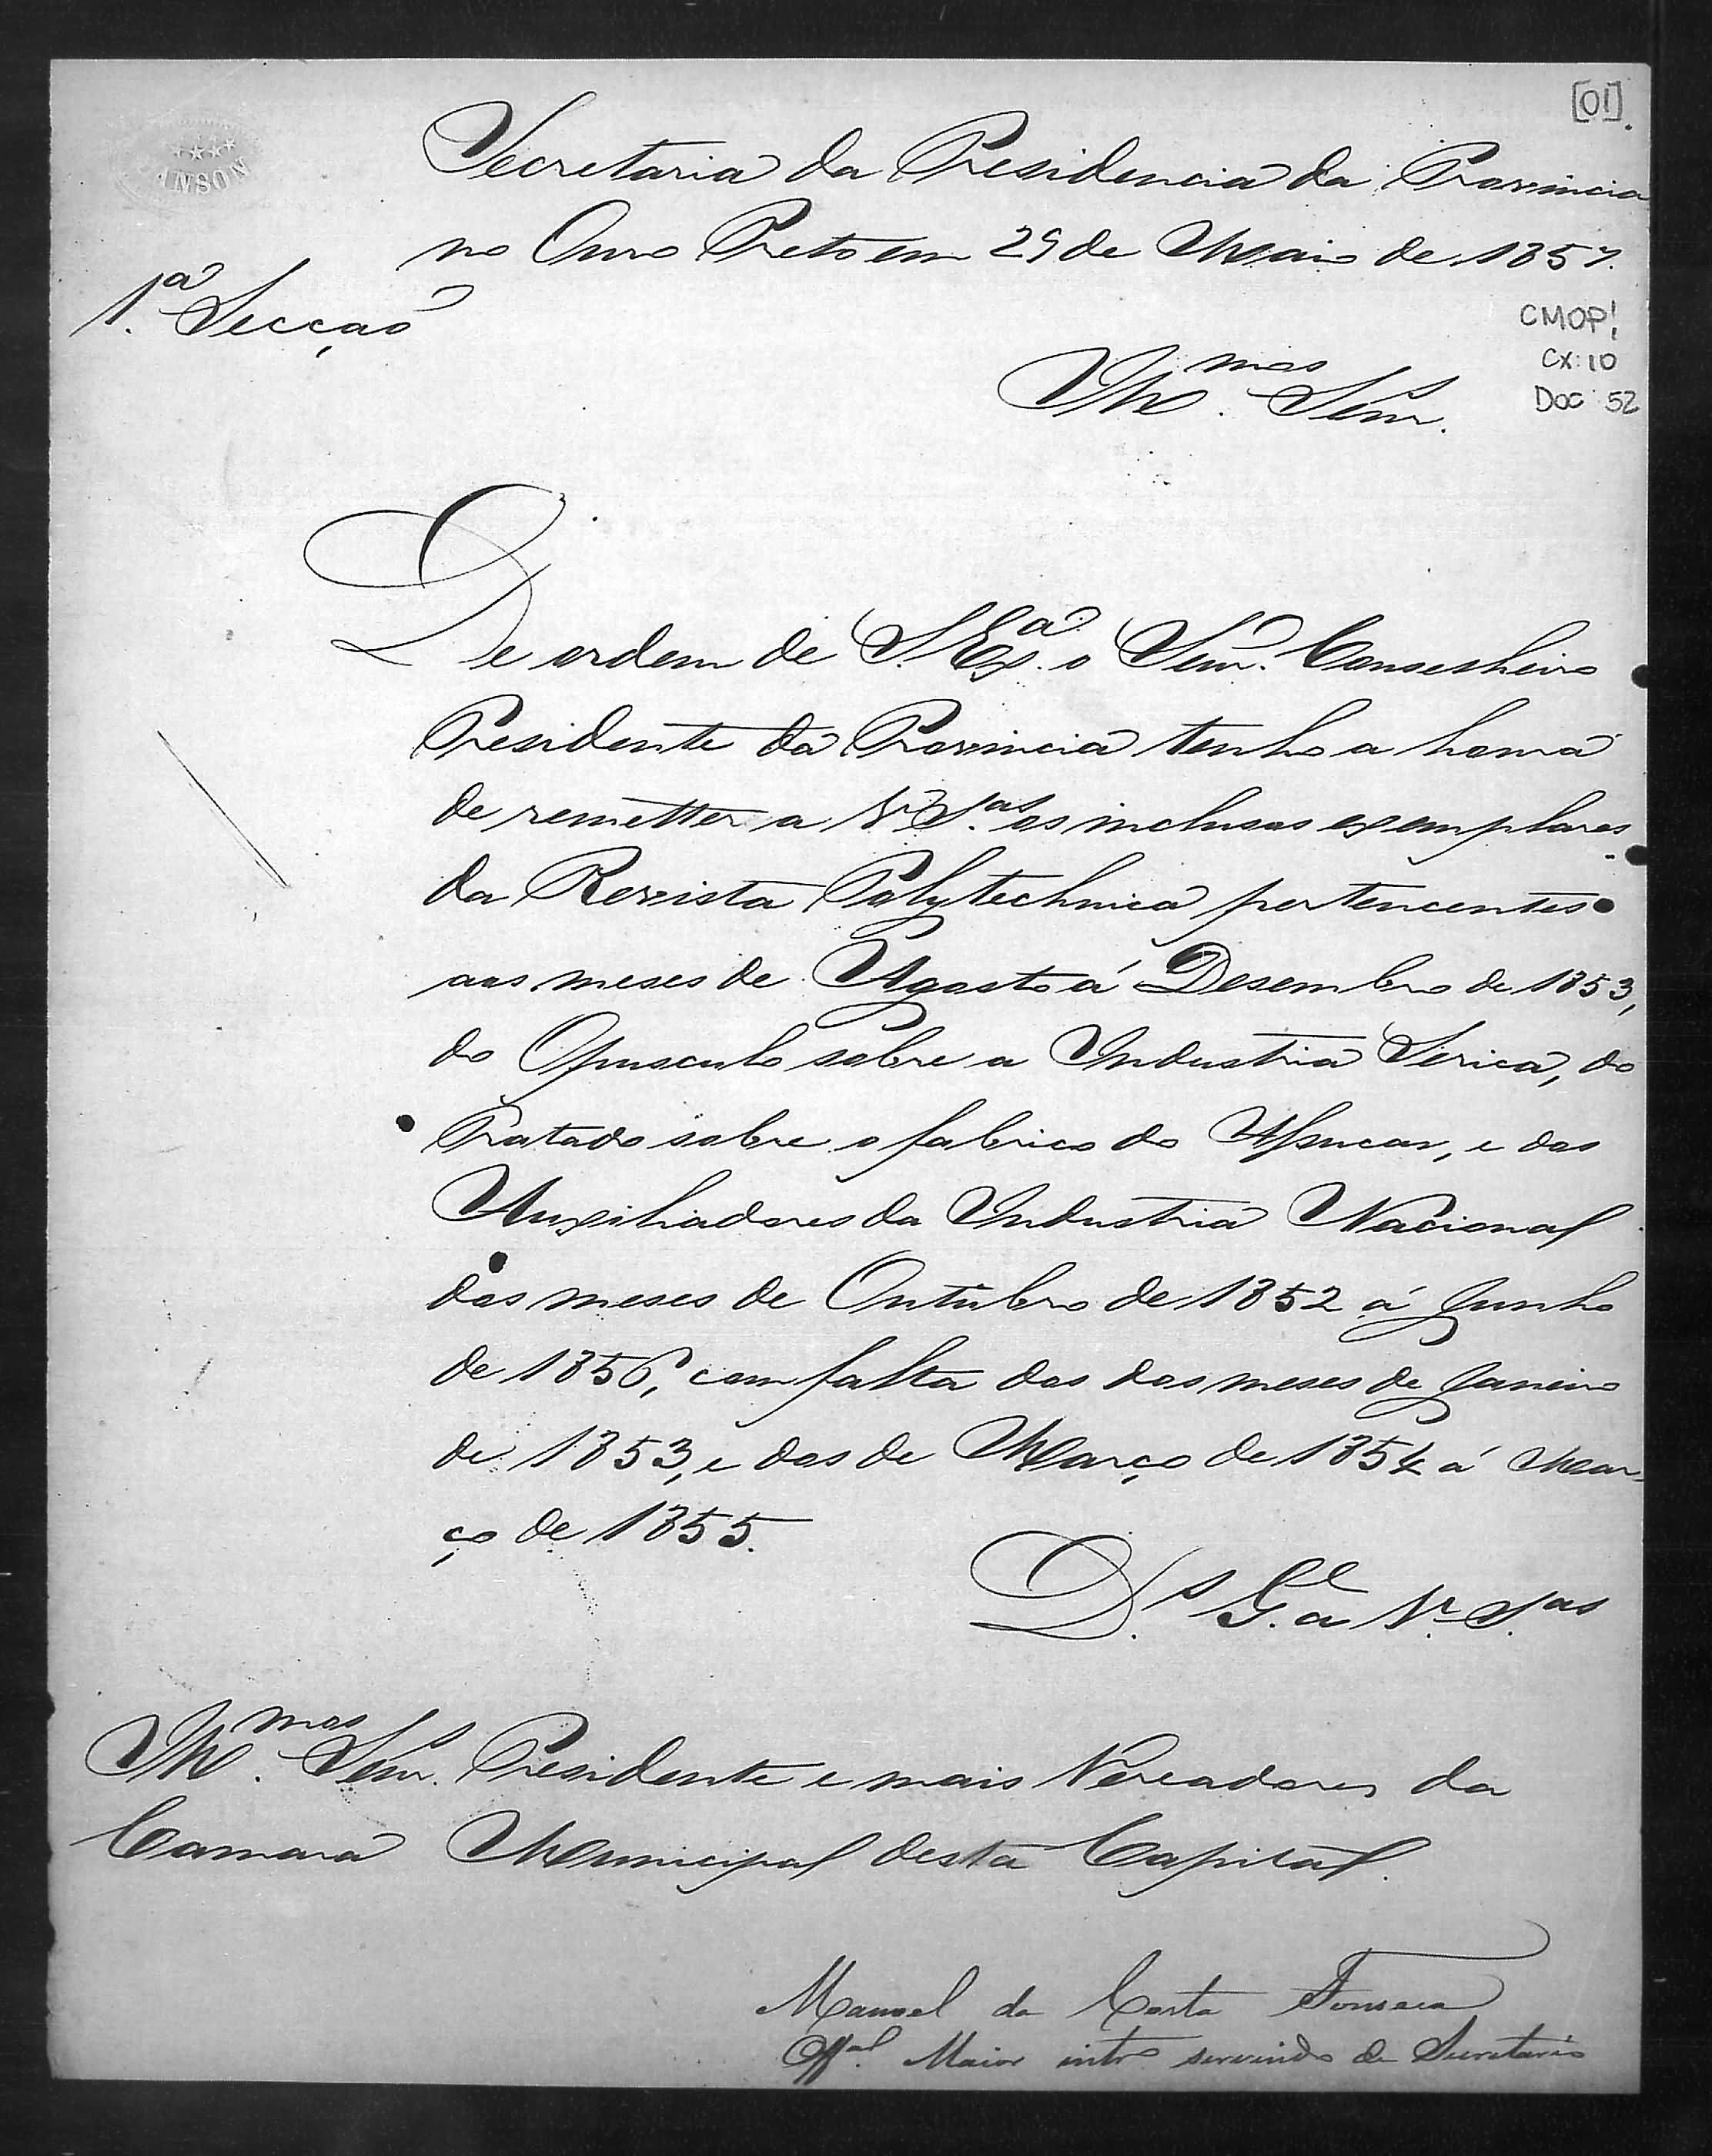 [01].
ANSON
Secretaria da Presidencia da Provincia
no Ouro Preto em 29 de Maio de 1857.
1.ª Secçaõ
CMOP!
CX: 10
DOC 52
Ill.mos Senr.s
De ordem de S. Ex.ª o Senr. Conselheiro
Presidente da Provincia tenho a honra
de remetter a V.S.as os inclusos exemplares
da Revista Polytechnica pertencentes
aos meses de Agosto á Desembro de 1853,
do Opusculo sobre a Industria Serica, do
Tratado sobre o fabrico do Assucar, e dos
Auxiliadores da Industria Nacional
dos meses de Outubro de 1852 á Junho
de 1856, com falta dos dos meses de Janeiro
de 1853, e dos de Março de 1854 á Mar-
ço de 1855.
D.s G.e a V.S.as
Ill.mos Senr.s Presidente e mais Vereadores da
Camara Municipal desta Capital.
Manoel da Costa Fonseca
Off.al Maior intro servindo de Secretario